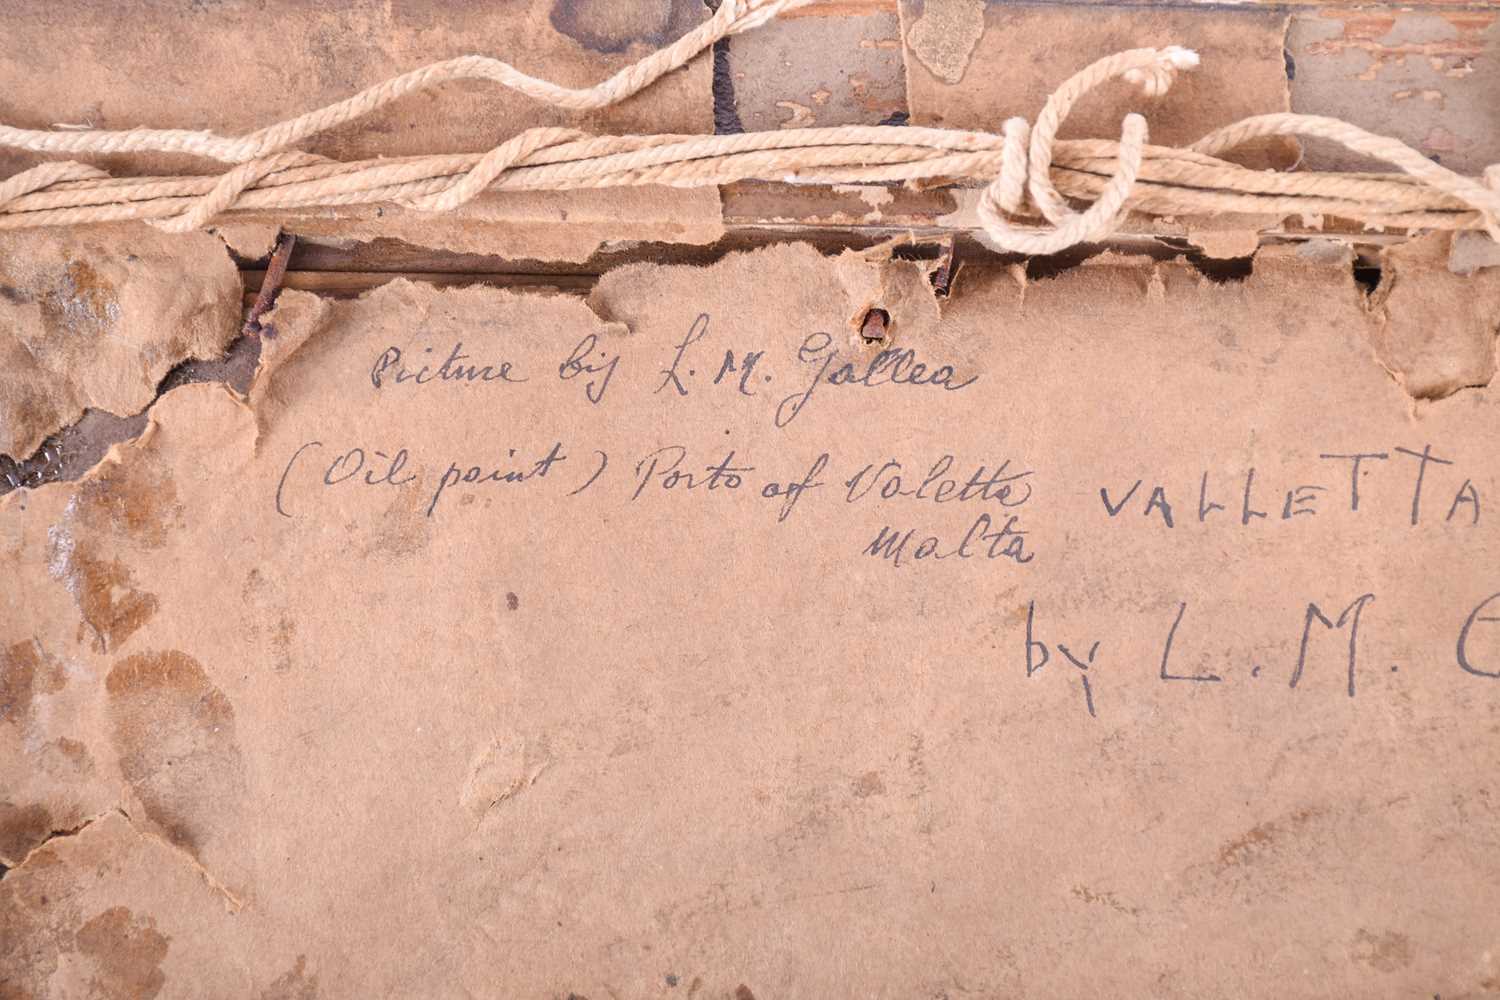 Picture by L. M. Gallea
(Oil paint) Porto of Valetta
Malta
VALLETTA
by L. M.